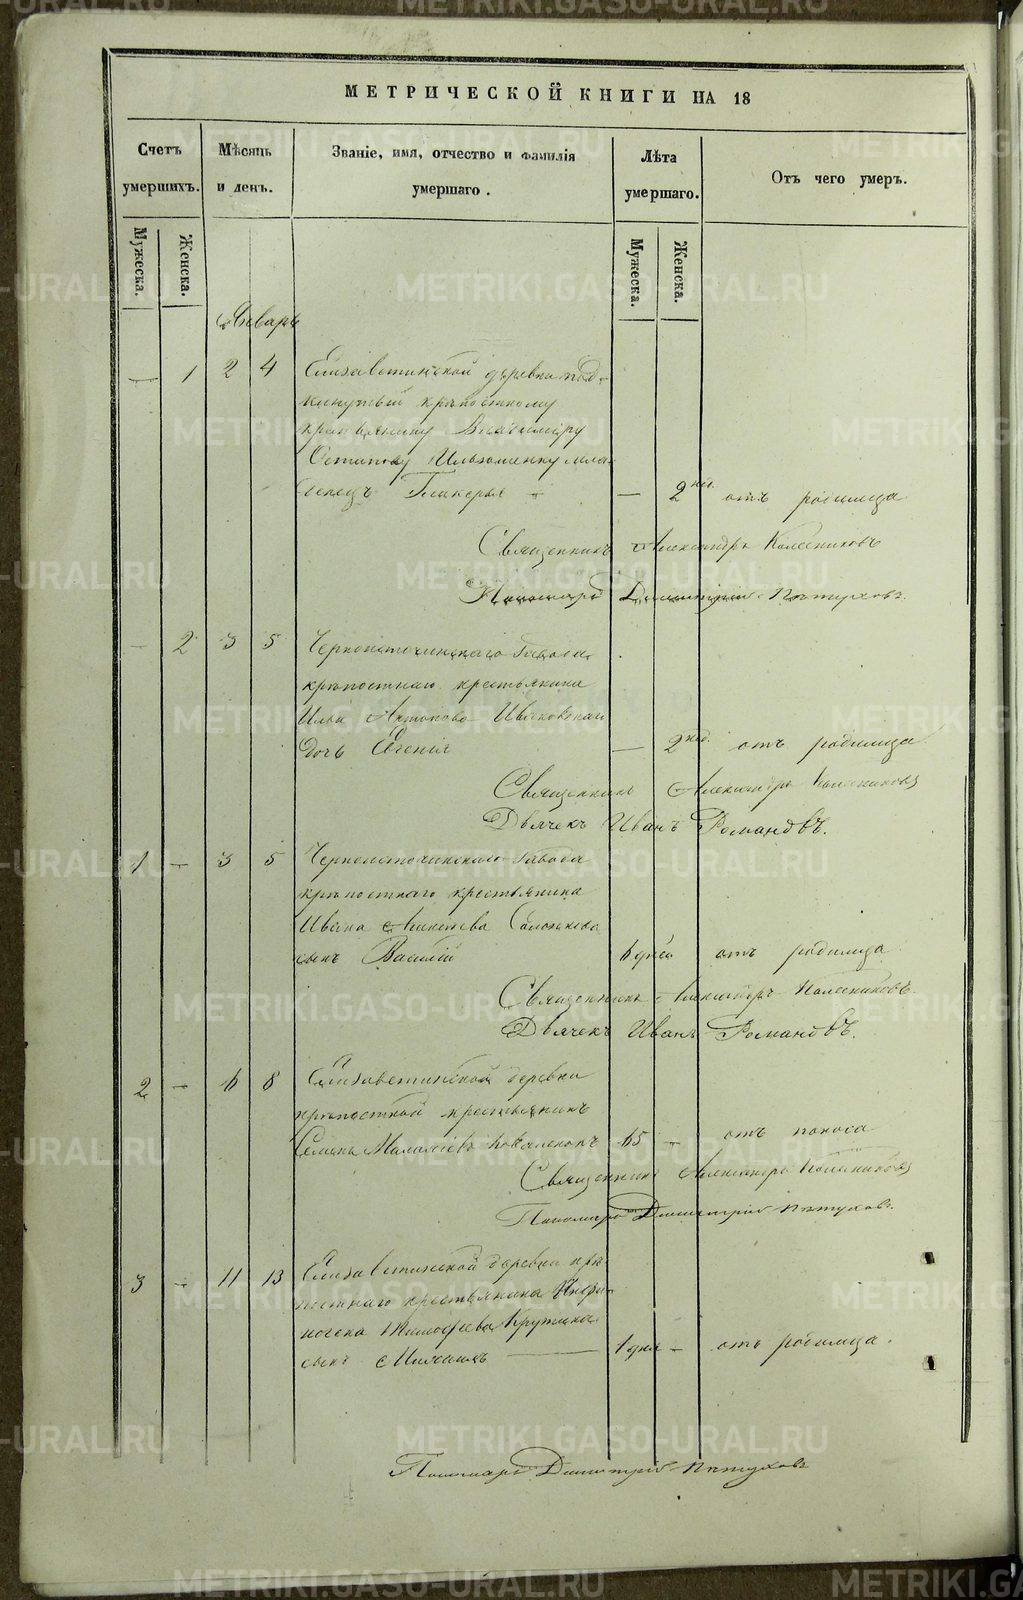 МЕТРИЧЕСКОЙ КНИГИ НА 18
Счетъ умершихъ.
Мѣсяць и день.
Званіе, имя, отчество и фамилія умершаго.
Лѣта умершаго.
Отъ чего умеръ.
Мужеска.
Женска.
Мужеска.
Женска.
Январь
— 1 2 4 Елизаветинской деревни под-
кинутый крѣпостному
крестьянину Владиміру
Остапову мла-
денецъ Гликерія — 2 нед. отъ родимца
Священникъ Александръ Колесниковъ
Пономарь Димитрій Пѣтуховъ.
— 2 3 5 Черноисточинскаго Завода
крѣпостнаго крестьянина
Ильи Антонова Ивановскаго
дочь Евгенія — 2 нед. отъ родимца
Священникъ Александръ Колесниковъ
Дьячекъ Иванъ Романовъ.
1 — 3 5 Черноисточинскаго Завода
крѣпостнаго крестьянина
Ивана Никитева
сынъ Василій 6 дней отъ родимца
Священникъ Александръ Колесниковъ.
Дьячекъ Иванъ Романовъ.
2 — 6 8 Елизаветинской деревни
крѣпостной крестьянинъ
Семенъ 65 — отъ поноса
Священникъ Александръ Колесниковъ
Пономарь Димитрій Пѣтуховъ.
3 — 11 13 Елизаветинской деревни крѣ-
постнаго крестьянина Анфи-
ногена Тимофеева
сынъ Михаилъ — 1 дня — отъ родимца.
Пономарь Димитрій Пѣтуховъ
METRIKI.GASO-URAL.RU